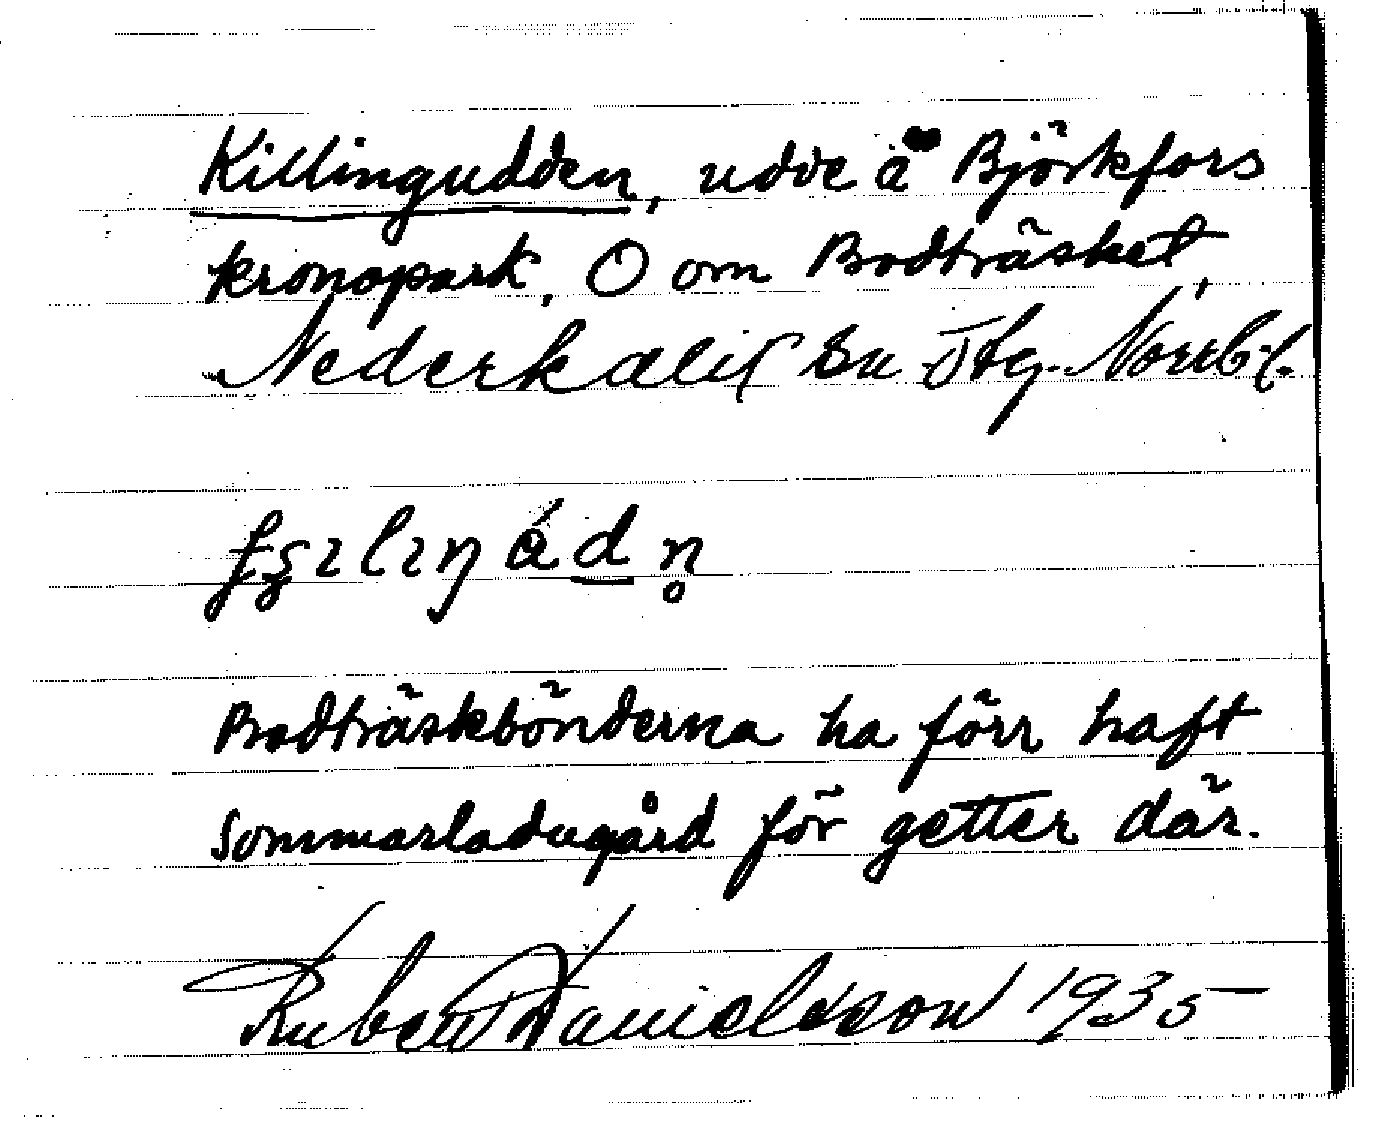 Killingudden, udde å Björkfors
kronopark, O om Bodträsket,
Nederkalix Sn Töre tg. Norrb. l.
Bodträskbönderna ha förr haft
sommarladugård för getter där.
Ruben Danielsson 1935